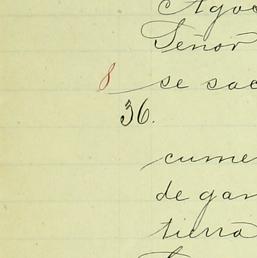 Agos
Señor
8 se sac
36.
cume
de gan
tierra